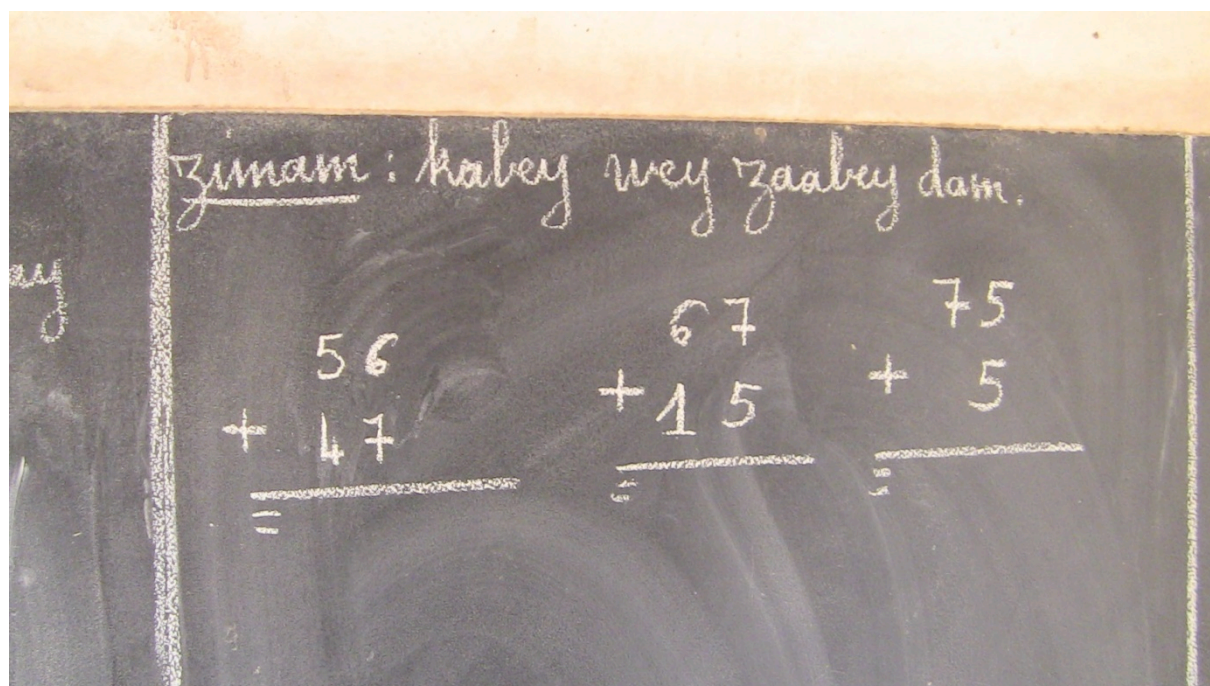 zimam : kabey wey zaabey dam.
ay
56
+ 47
=
67
+ 15
=
75
+ 5
=